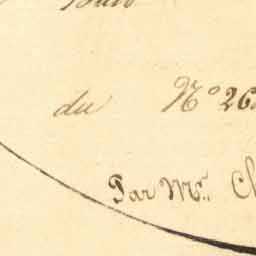 du N° 26
Par Mr. Ch